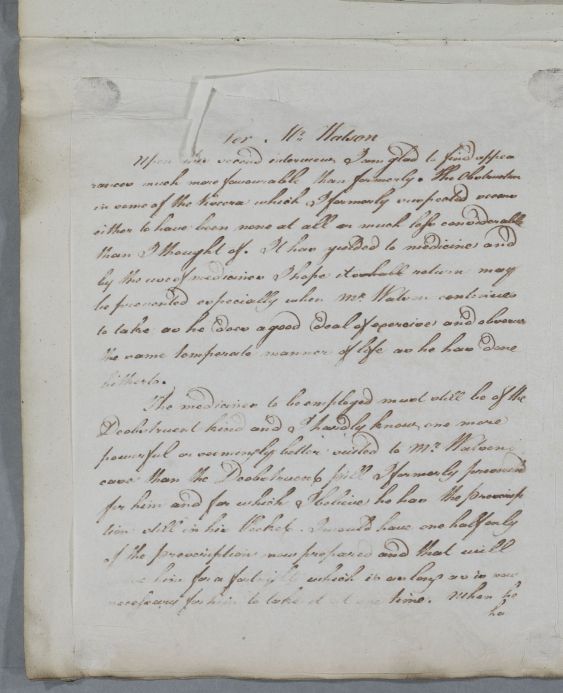 For Mr. Watson
Upon this second interview I am glad to find appea
rances much more favourable than formerly. The Obstruction
in some of the Viscera which I formerly suspected seems
either to have been none at all or much less considerable
than I thought of. It has yielded to medicine and
by the use of medicines I hope its shall return may
be prevented especially when Mr. Watson continues
to take as he does a good deal of exercise and observes
the same temperate manner of life as he has done
hitherto.
The medicines to be employed must still be of the
Deobstruent kind and I hardly know one more
powerful or seemingly better suited to Mr. Watsons
case than the Deobstruent pill I formerly prescribed
for him and for which I believe he has the prescrip
tion still in his Pocket. I would have one half only
of the prescription now prepared and that will
him for a fortnight which is as long as is
necessary for him to take it at one time. When he
ha